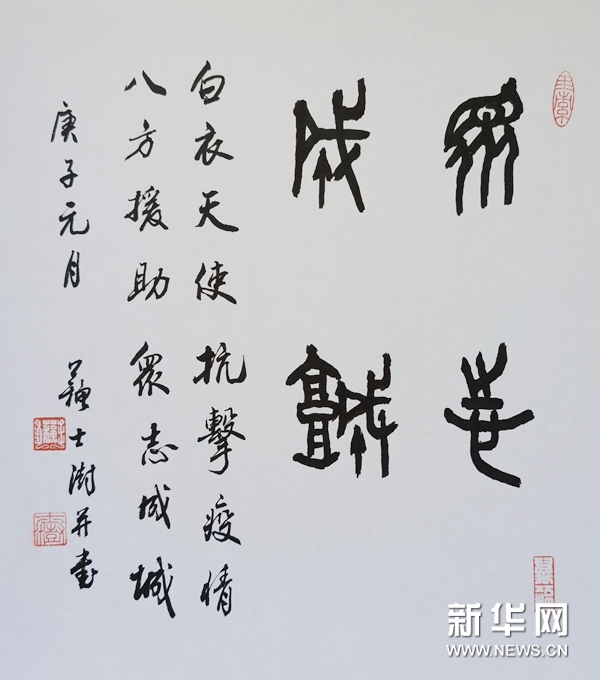 眾志
成城
白衣天使抗擊疫情
八方援助眾志成城
庚子元月 蘇士澍并書
新华网
WWW.NEWS.CN